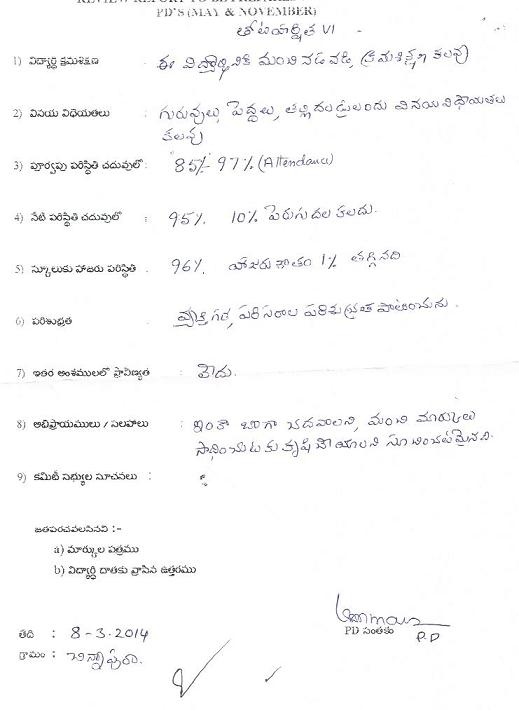 PD'S (MAY & NOVEMBER)
తోటహర్షిత VI
1) విద్యార్థి క్రమశిక్షణ : ఈ విద్యార్థినికి మంచి నడవడి, క్రమశిక్షణ కలవు
2) వినయ విధేయతలు : గురువులు, పెద్దలు, తల్లిదండ్రులందు వినయవిధేయతలు
కలవు
3) పూర్వపు పరిస్థితి చదువులో : 85% 97% (Attendance)
4) నేటి పరిస్థితి చదువులో : 95%. 10% పెరుగుదల కలదు.
5) స్కూలుకు హాజరు పరిస్థితి . 96%. హాజరు శాతం 1% తగ్గినది
6) పరిశుభ్రత : వ్యక్తిగత, పరిసరాల పరిశుభ్రత పాటించును.
7) ఇతర అంశములలో ప్రావిణ్యత :
8) అభిప్రాయములు / సలహాలు : ఇంకా బాగా చదవాలని, మంచి మార్కులు
సాధించుటకు కృషి చేయాలని
9) కమిటీ సభ్యుల సూచనలు :
జతపరచవలసినవి :-
a) మార్కుల పత్రము
b) విద్యార్థి దాతకు వ్రాసిన ఉత్తరము
PD సంతకం P.D
తేది : 8-3-2014
గ్రామం :